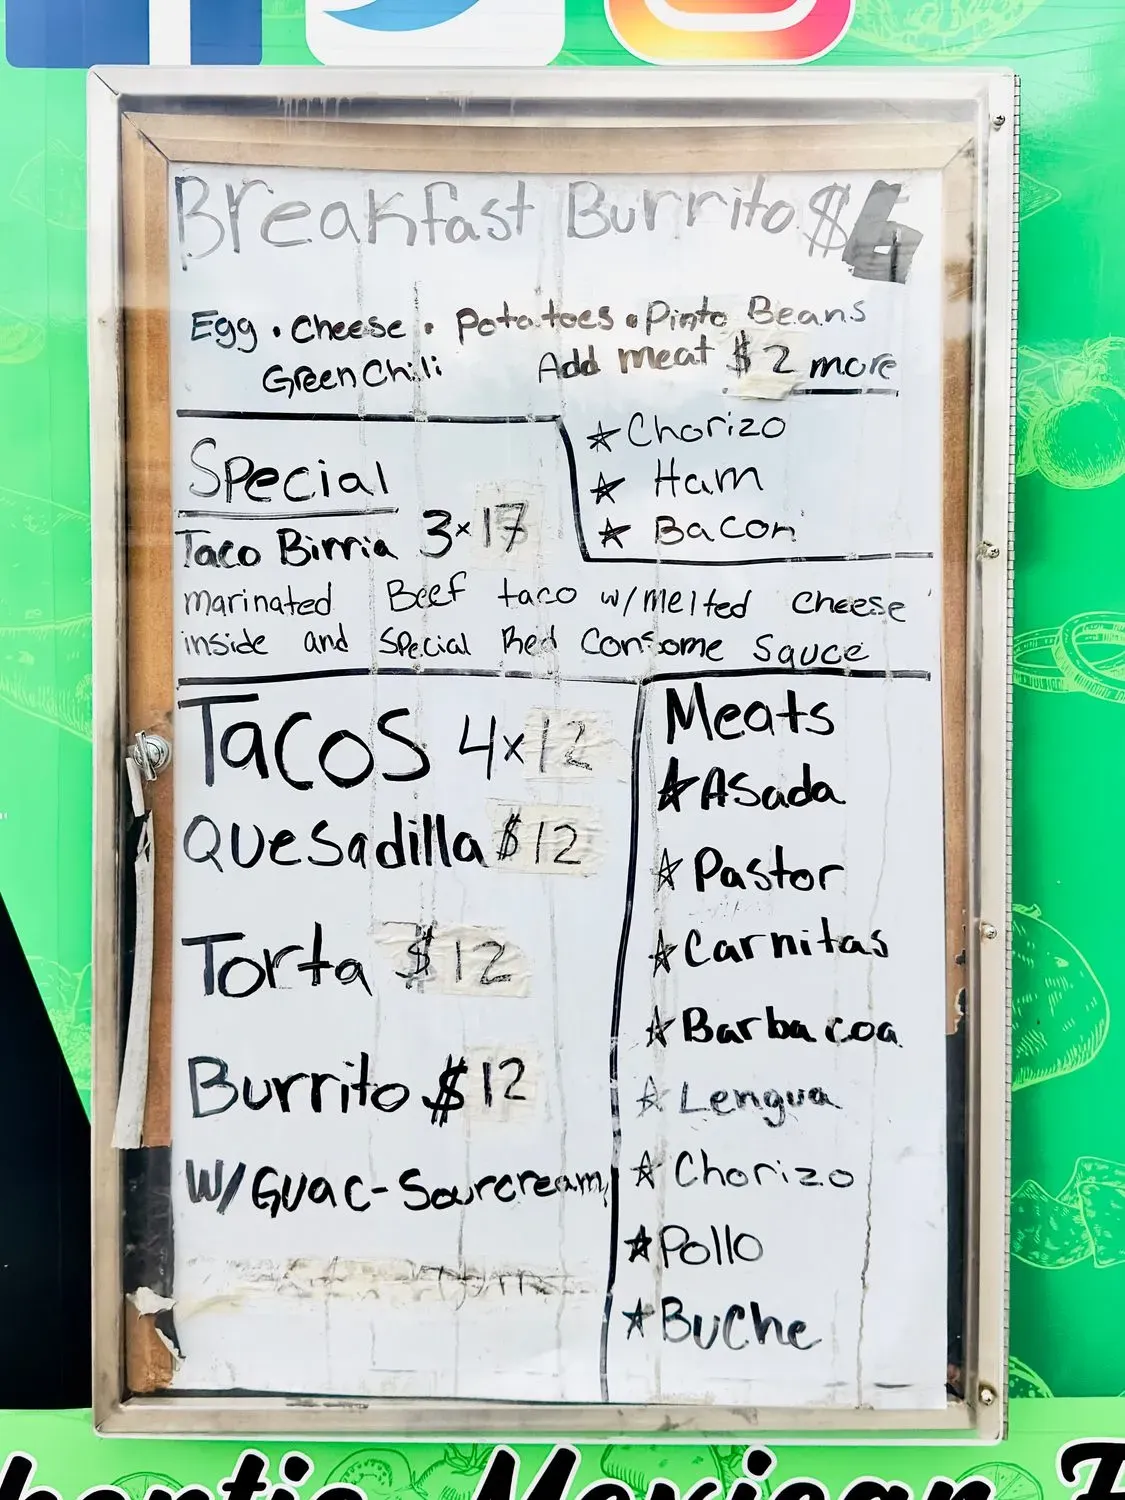 Breakfast Burrito $6
Egg • Cheese • Potatoes • Pinto Beans
Green Chili Add meat $2 more
☆ Chorizo
☆ Ham
☆ Bacon
Special
Taco Birria 3x17
marinated Beef taco w/melted cheese
inside and special Red Consome Sauce
Tacos 4x12
Quesadilla $12
Torta $12
Burrito $12
W/Guac-Sourcream
Meats
☆ Asada
☆ Pastor
☆ Carnitas
☆ Barbacoa
☆ Lengua
☆ Chorizo
☆ Pollo
☆ Buche
Mexican